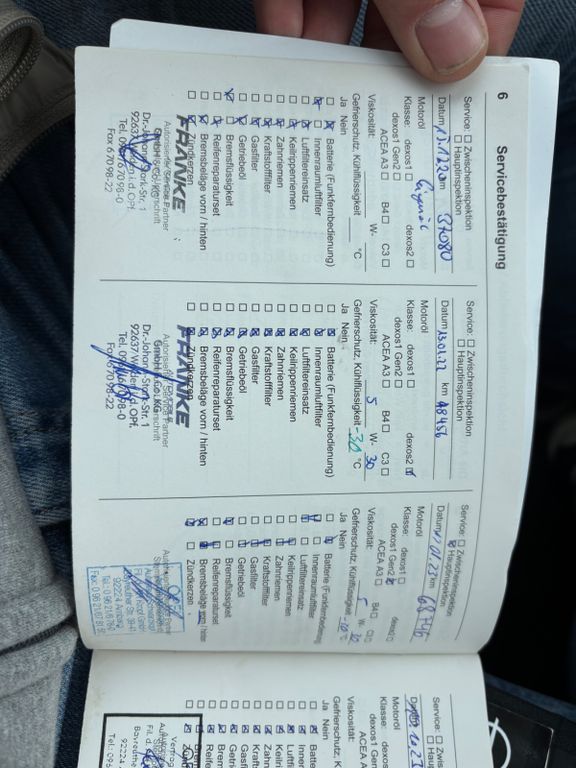 6
Servicebestätigung
Service: ☐ Zwischeninspektion
☐ Hauptinspektion
Datum 13.12.20 km 37080
Motoröl
Klasse: dexos1 ☐ dexos2 ☐
dexos1 Gen2 ☐
ACEA A3 ☐ B4 ☐ C3 ☐
Viskosität: W-
Gefrierschutz, Kühlflüssigkeit °C
Ja Nein
Batterie (Funkfernbedienung)
Innenraumluftfilter
Luftfiltereinsatz
Keilrippenriemen
Zahnriemen
Kraftstofffilter
Gasfilter
Getriebeöl
Bremsflüssigkeit
Reifenreparaturset
Bremsbeläge vorn / hinten
Zündkerzen
FRANKE
Autorisierter Service Partner
GmbH & Co. KG
92637 Weiden i. d. OPf.
Fax 6 70 98-22
Service: ☐ Zwischeninspektion
☐ Hauptinspektion
Datum 13.01.22 km 48456
Motoröl
Klasse: dexos1 ☐ dexos2 ☑
dexos1 Gen2 ☐
ACEA A3 ☐ B4 ☐ C3 ☐
Viskosität: 5 W- 30
Gefrierschutz, Kühlflüssigkeit -30 °C
Ja Nein
Batterie (Funkfernbedienung)
Innenraumluftfilter
Luftfiltereinsatz
Keilrippenriemen
Zahnriemen
Kraftstofffilter
Gasfilter
Getriebeöl
Bremsflüssigkeit
Reifenreparaturset
Bremsbeläge vorn / hinten
Zündkerzen
FRANKE
Autorisierter Service Partner
GmbH & Co. KG
Fax 6 70 98-22
Service: ☐ Zwischeninspektion
☒ Hauptinspektion
Datum km 68746
Motoröl
Klasse: dexos1 ☐ dexos2 ☐
dexos1 Gen2
ACEA A3 ☐ B4 ☐ C3 ☐
Viskosität: 5 W- 30
Gefrierschutz, Kühlflüssigkeit °C
Ja Nein
Batterie (Funkfernbedienung)
Innenraumluftfilter
Luftfiltereinsatz
Keilrippenriemen
Zahnriemen
Kraftstofffilter
Gasfilter
Getriebeöl
Bremsflüssigkeit
Reifenreparaturset
Bremsbeläge vorn / hinten
Zündkerzen
92224 Amberg
Service: ☐ Zwi
☐ Hau
Motoröl
Klasse: dexos
dexos1 Ge
ACEA A
Viskosität:
Gefrierschutz, K
Ja Nein
Batt
Inne
Luft
Keil
Zahn
Kraf
Gas
Get
Bre
Reif
Bre
Bayreuthe
92224